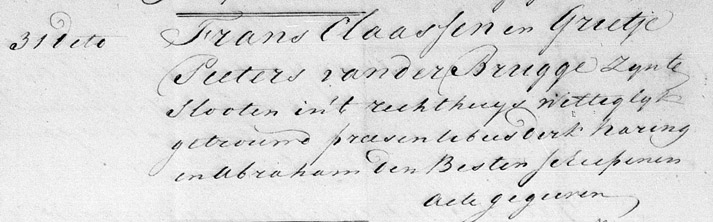 31 deto Frans Claassen en Grietje
Pieters van der Brugge Zynte
Slooten in't rechthuys wetteglyk
getrouwd præsentebus dirk haring
en abraham den Besten scheepenen
acte gegeeven